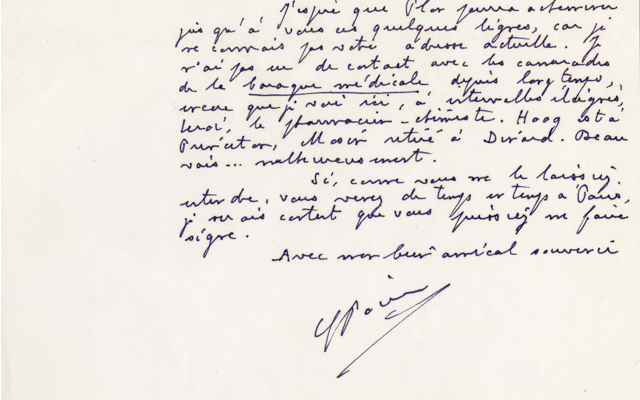 J'espère que Plon pourra acheminer
jusqu'à vous ces quelques lignes, car je
ne connais pas votre adresse actuelle. Je
n'ai pas eu de contact avec les camarades
de la baraque médicale depuis longtemps,
encore que je voie ici, à intervalles éloignés,
le pharmacien-chimiste. Haag est à
Mosér retiré à Dinard. Beau
vais... malheureusement.
Si, comme vous me le laissiez
entendre, vous venez de temps en temps à Paris,
je serais content que vous puissiez me faire
signe.
Avec mon bien amical souvenir